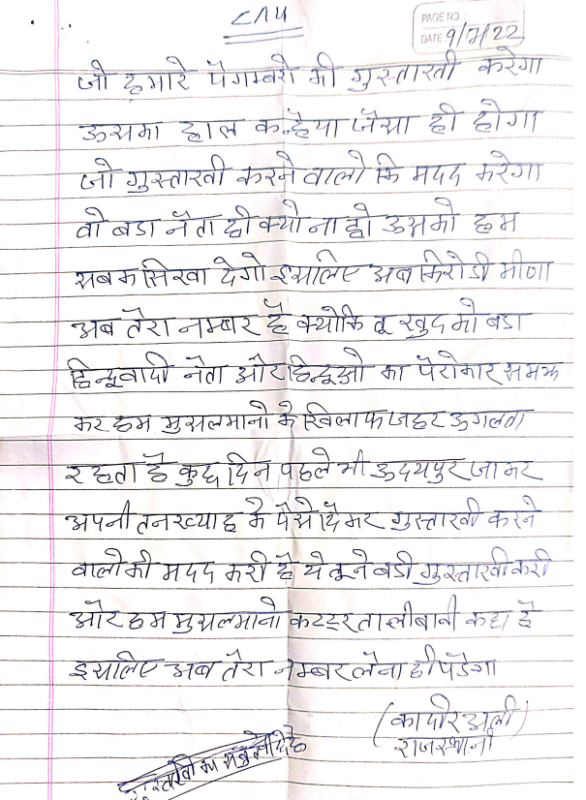 PAGE NO.
DATE 9/7/22
जो हमारे पैगम्बरो की गुस्ताखी करेगा
ऊसका हाल कन्हैया जैसा ही होगा
जो गुस्ताखी करने वालो कि मदद करेगा
वो बडा नेता ही क्यो ना हो ऊसको हम
सबक सिखा देगे इसलिए अब किरोडी मीणा
अब तेरा नम्बर है क्योकि तू खुद को बडा
हिन्दूवादी नेता और हिन्दूओ का पेरोकार समझ
कर हम मुसलमानो के खिलाफ जहर ऊगलता
रहता है कुछ दिन पहले भी ऊदयपुर जाकर
अपनी तनख्याह के पैसे देकर गुस्ताखी करने
वालो की मदद करी है ये तूने बडी गुस्ताखी करी
और हम मुसलमानो कटटर तालीबानी कहा है
इसलिए अब तेरा नम्बर लेना ही पडेगा
(कादीर अली)
राजस्थानी